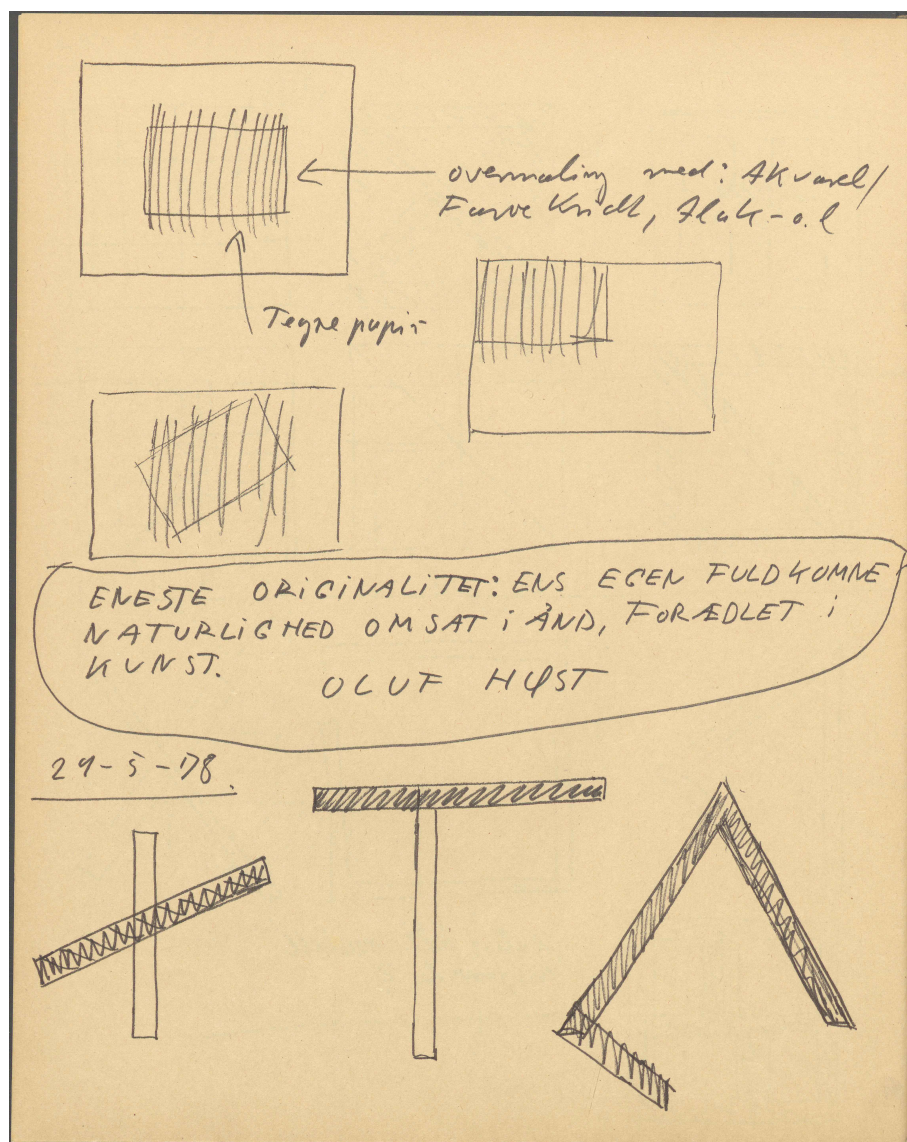 overmaling med: AKvarel/
Farve Kridt, Blæk-o.l
Tegnepapir
ENESTE ORIGINALITET: ENS EGEN FULDKOMNE
NATURLIGHED OMSAT i ÅND, FORÆDLET i
KUNST.
OLUF HØST
29-5-78.